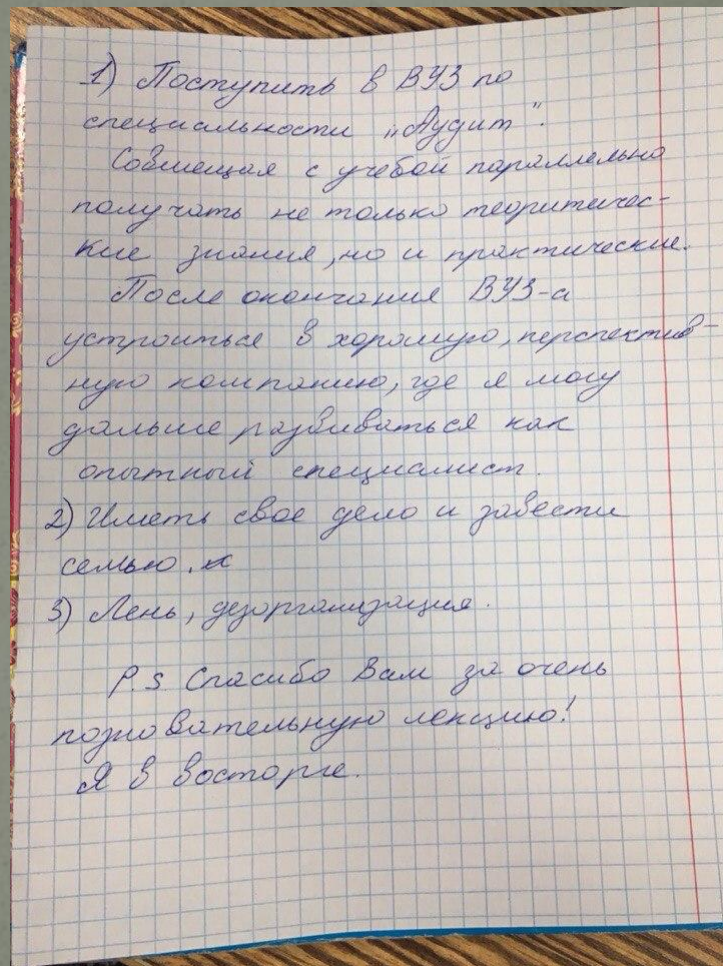 1) Поступить в ВУЗ по
специальности „Аудит".
Совмещая с учебой параллельно
получать не только теоритичес-
кие знания, но и практические.
После окончания ВУЗ-а
устроиться в хорошую, перспектив-
ную компанию, где я могу
дальше развиваться как
опытный специалист.
2) Иметь свое дело и завести
семью.
3) Лень, дезорганизация.
P.S Спасибо Вам за очень
позновательную лекцию!
Я в восторге.